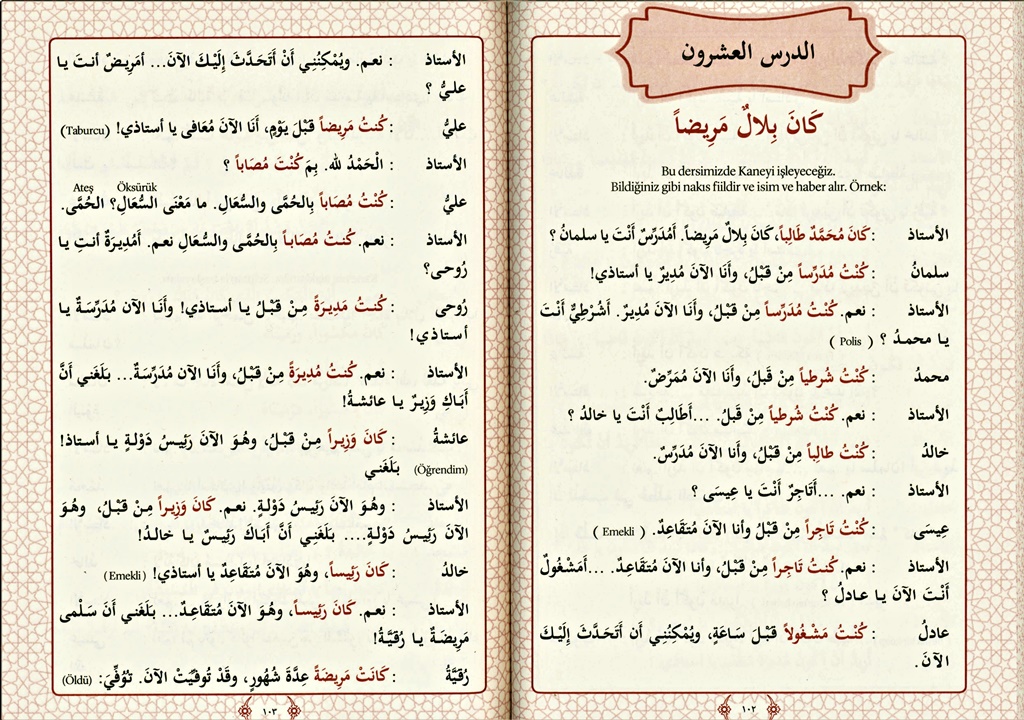 الدرس العشرون
كَانَ بِلالٌ مَرِيضاً
Bu dersimizde Kaneyi işleyeceğiz.
Bildiğiniz gibi nakıs fiildir ve isim ve haber alır. Örnek:
الأستاذ : كَانَ مُحَمَّدٌ طَالِباً، كَانَ بِلالٌ مَرِيضاً. أَمُدَرِّسٌ أَنْتَ يا سلمانُ ؟
سلمانُ : كُنْتُ مُدَرِّساً مِنْ قَبْلُ، وأَنَا الآنَ مُدِيرٌ يا أستاذي!
الأستاذ : نعم. كُنْتُ مُدَرِّساً مِنْ قَبْلُ، وأَنَا الآنَ مُدِيرٌ. أَشُرْطِيٌّ أَنْتَ
يـا محمـدُ ؟ ( Polis )
محمدُ : كُنْتُ شُرطياً مِنْ قَبلُ، وأَنَا الآنَ مُمَرِّضٌ.
الأستاذ : نعم. كُنْتُ شُرطياً مِنْ قَبلُ. ...أَطَالِبٌ أَنْتَ يا خالدُ ؟
خالدُ : كُنْتُ طالِباً مِنْ قَبْلُ، وأَنا الآنَ مُدَرِّسٌ.
الأستاذ : نعم. ...أَتَاجِرٌ أَنْتَ يا عِيسَى ؟
عِيسَى : كُنْتُ تَاجِراً مِنْ قَبْلُ وأنا الآنَ مُتَقَاعِدٌ. ( Emekli )
الأستاذ : نعم. كُنتُ تَاجِراً مِنْ قَبْلُ، وأنا الآنَ مُتَقَاعِدٌ. ...أَمَشْغُولٌ
أَنْتَ الآنَ يـا عـادلُ ؟
عادلُ : كُنْـتُ مَشْـغُولاً قَبْـلَ سَـاعَةٍ، ويُمْكِنُنِـي أَن أَتَحَدَّثَ إِلَيْـكَ
الآنَ.
١٠٢
الأستاذ : نعـم. ويُمْكِنُنِـي أَنْ أَتَحَـدَّثَ إِلَيْـكَ الآنَ... أمَرِيـضٌ أنـتَ يـا
علـيُّ ؟
عليُّ : كُنتُ مَرِيضاً قَبْلَ يَوْمٍ، أَنَا الآنَ مُعَافى يا أستاذي! (Taburcu)
الأستاذ : الْحَمْدُ لله. بِمَ كُنْتَ مُصَاباً ؟
Ateş Öksürük
عليُّ : كُنْتُ مُصَاباً بِالحُمَّى والسُّعَالِ. ما مَعْنَى السُّعَالِ؟ الحُمَّى.
الأستاذ : نعـم. كُنـتُ مُصَابـاً بِالحُمَّى والسُّعَالِ نعـم. أَمُدِيـرَةٌ أنـتِ يـا
رُوحى؟
رُوحى : كُنـتُ مَدِيـرَةً مِـنْ قَبْـلُ يـا أسـتاذي! وأَنـا الآن مُدَرِّسَـةٌ يـا
أسـتاذي!
الأستاذ : نعـم. كُنـتُ مُدِيـرَةً مِنْ قَبْلُ، وأَنَا الآن مُدَرِّسَةٌ... بَلَغَني أَنَّ
أَبَـاكِ وَزِيـرٌ يـا عائشـةُ!
عائشةُ : كَانَ وَزِيـراً مِـنْ قَبْـلُ، وهُـوَ الآنَ رَئِيـسُ دَوْلَـةٍ يـا أسـتاذ!
بَلَغَني (Öğrendim)
الأستاذ : وهُـوَ الآنَ رَئِيـسُ دَوْلَـةٍ. نعـم. كَانَ وَزِيـراً مِـنْ قَبْـلُ، وهُـوَ
الآنَ رَئِيـسُ دَوْلـةٍ.... بَلَغَنِي أَنَّ أَبَـاكَ رَئِيـسٌ يـا خالـدُ!
خالدُ : كَانَ رَئِيساً، وهُوَ الآنَ مُتَقَاعِدٌ يا أستاذي! (Emekli)
الأستاذ : نعـم. كَانَ رَئِيسـاً، وهُـوَ الآنَ مُتَقَاعِـدٌ... بَلَغَني أَنَ سَـلْمى
مَرِيضَـةٌ يـا رُقيَّـةُ!
رُقيَّةُ : كَانَتْ مَرِيضَةً عِدَّةَ شُهُورٍ، وقَدْ تُوفِّيَتْ الآنَ. تـُوُفِّيَ: (Öldü)
١٠٣